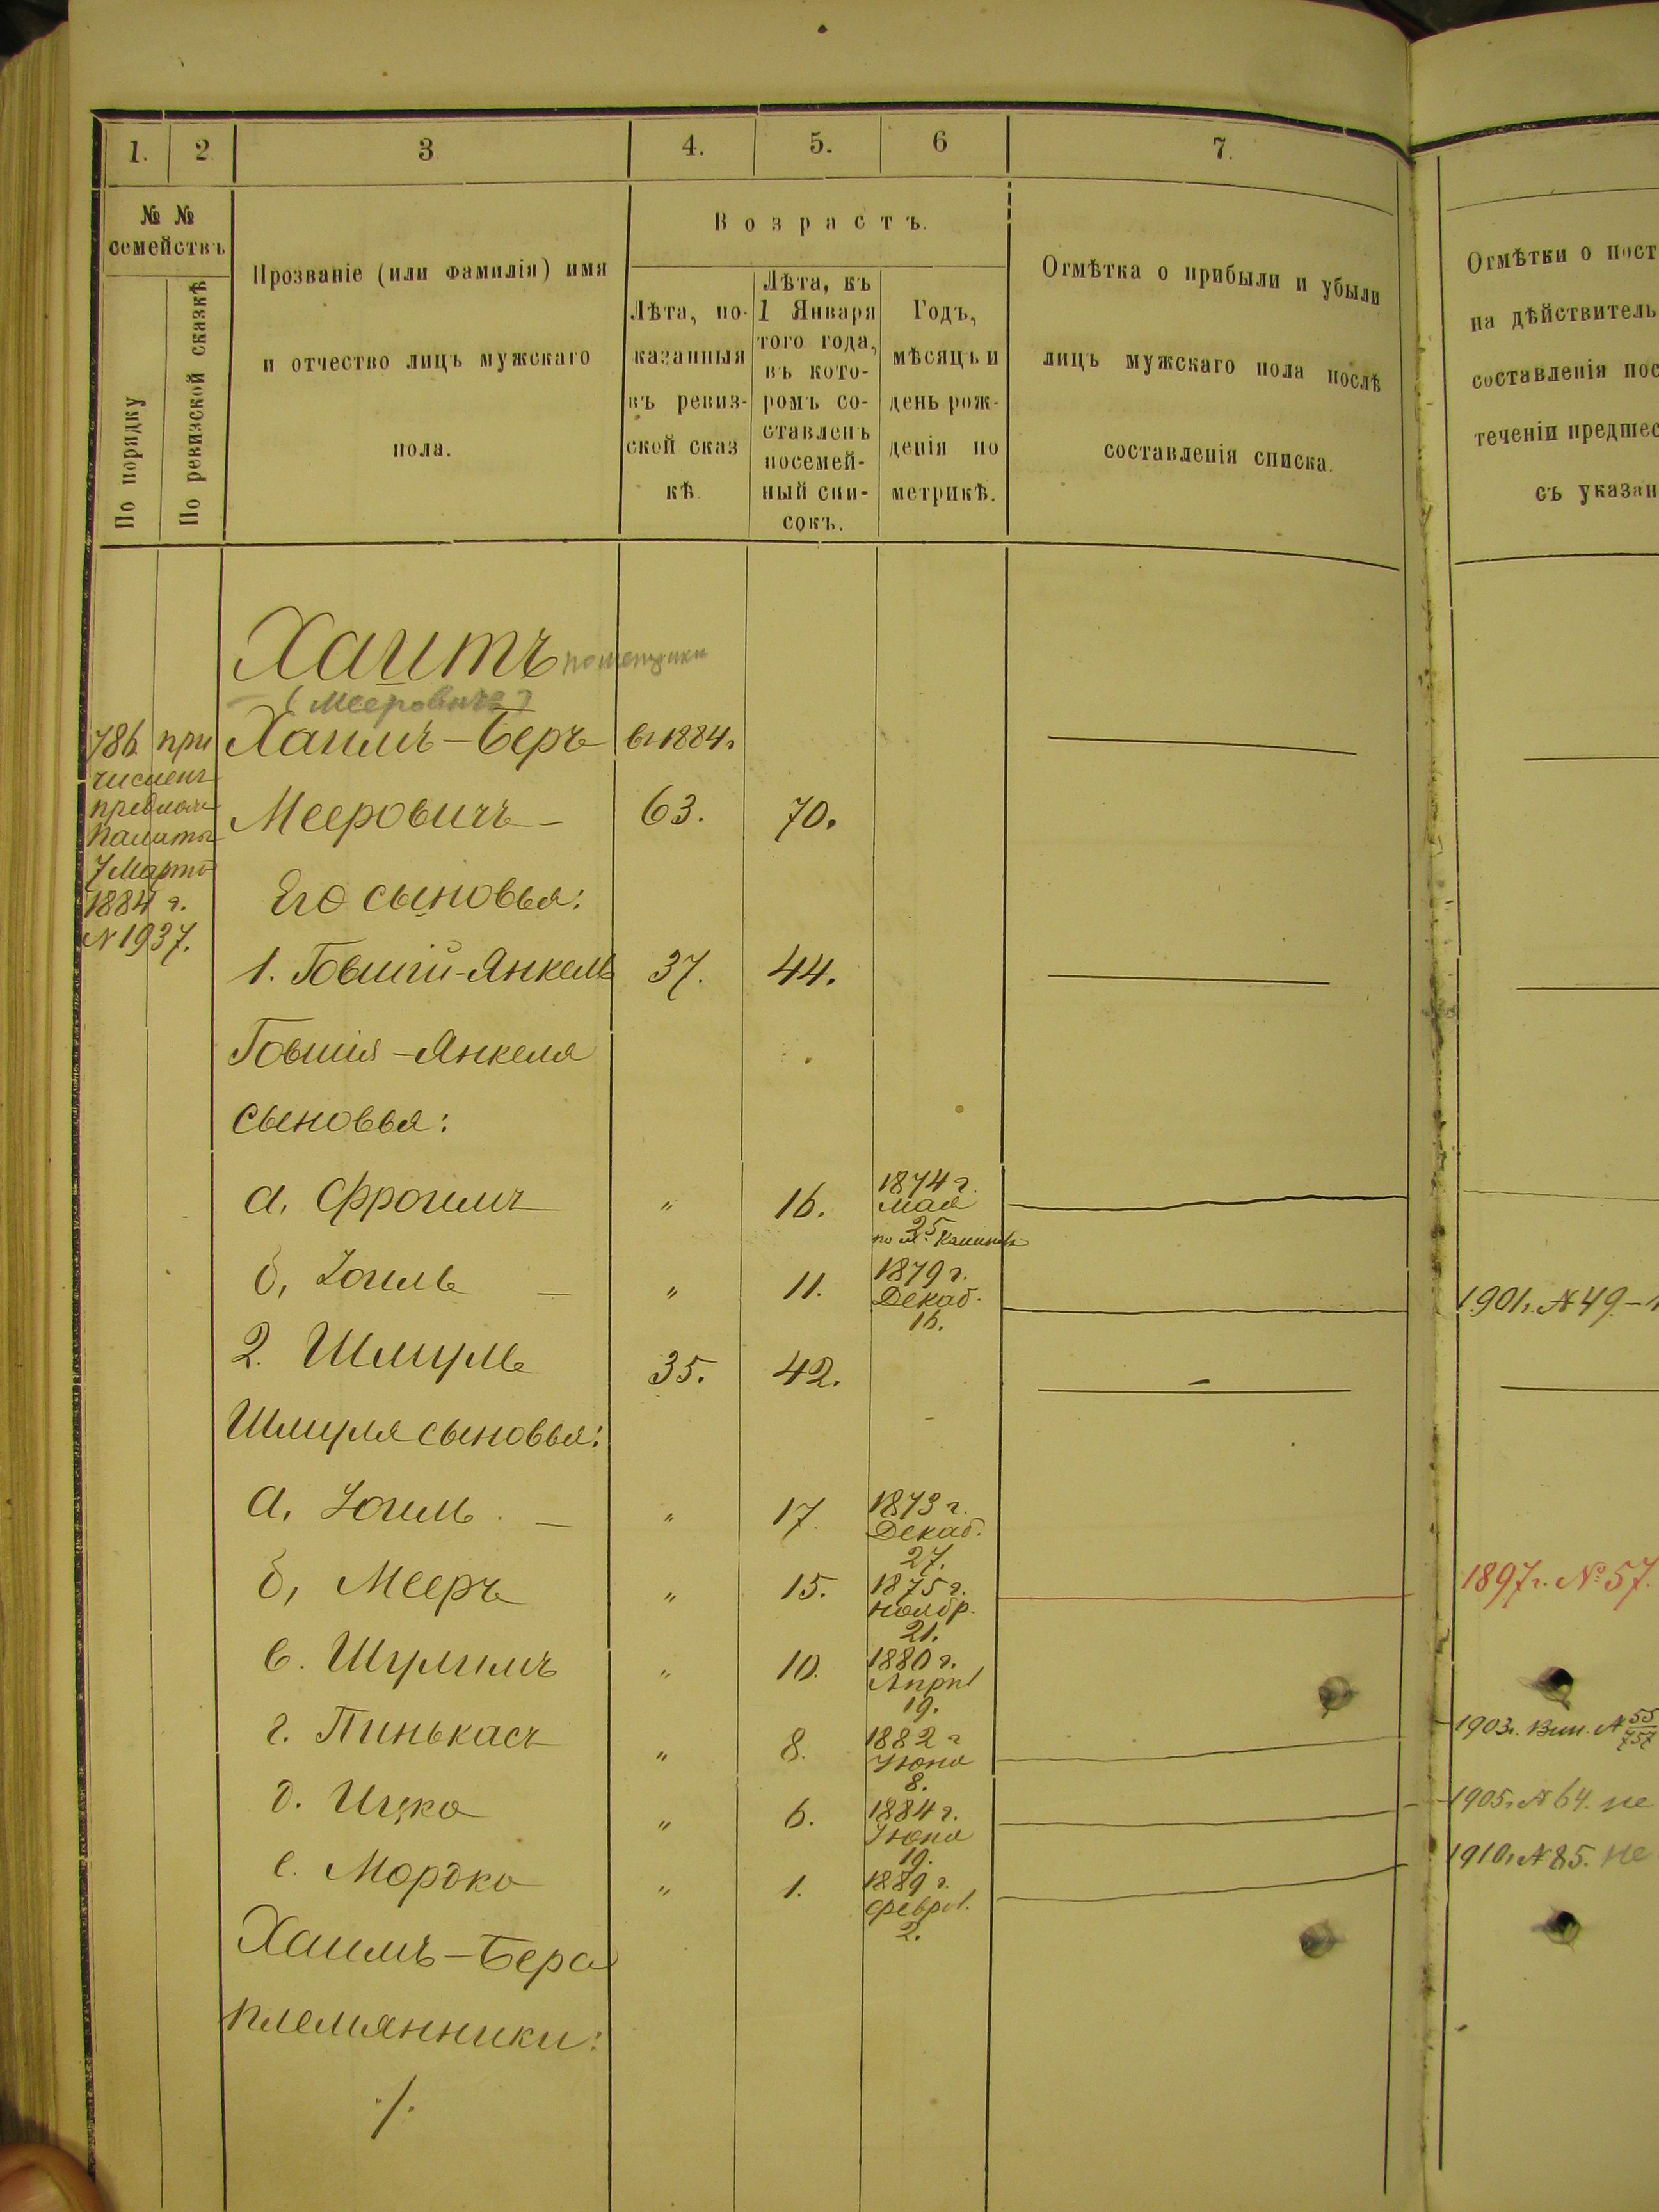 1. 2 3 4. 5. 6 7.
№ №
семействъ
По порядку
По ревизской сказкѣ
Прозваніе (или фамилія) имя
и отчество лицъ мужскаго
пола.
Возрастъ.
Лѣта, по-
казанныя
въ ревиз-
ской сказ
кѣ
Лѣта, къ
1 Января
того года,
въ кото-
ромъ со-
ставленъ
посемей-
ный спи-
сокъ.
Годъ,
мѣсяцъ и
день рож-
денія по
метрикѣ.
Отмѣтка о прибыли и убыли
лицъ мужскаго пола послѣ
составленія списка.
Отмѣтки о пост
на дѣйствитель
составленія пос
теченіи предшес
съ указан
Хаитъ
(Мееровичъ)
786 при
численъ
Палаты
7 Марта
1884 г.
N 1937.
Хаимъ-Беръ въ 1884.
Мееровичъ 63. 70.
Его сыновья:
1. Говшій-Янкель 37. 44.
Говшія-Янкеля
сыновья:
а, Фроимъ " 16. 1874 г.
Мая
25
б, Іоиль — " 11. 1879 г.
Декаб.
16.
1901 г. № 49 –
2. Шмуль 35. 42.
Шмуля сыновья:
а, Іоиль — " 17. 1873 г.
Декаб.
27.
б, Мееръ " 15. 1875 г.
Ноябр.
21.
1897 г. № 57.
в. Шулимъ " 10. 1880 г.
Апрѣл
19.
г. Пинькасъ " 8. 1882 г
Іюня
8.
1903 г. № 55
757
д. Ицко " 6. 1884 г.
Іюня
19.
1905 г. № 64. не
е. Мордко " 1. 1889 г.
Феврал.
2.
1910 г. № 85. не
Хаимъ-Бера
племянники:
./.